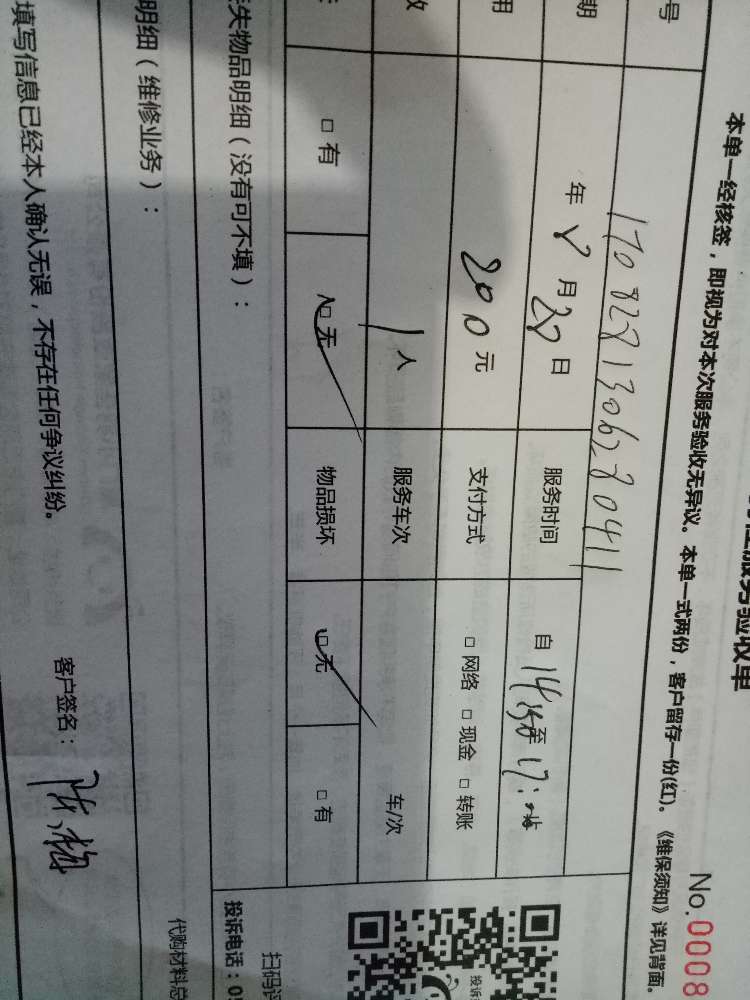 服务验收单
No.0008
本单一经核签，即视为对本次服务验收无异议。本单一式两份，客户留存一份(红)。《维保须知》详见背面。
号 1708281306280411
期 年 8 月 28 日 服务时间 自 14:30 至 17:
用 200 元 支付方式 □ 网络 □ 现金 □ 转账
数 1 人 服务车次 车/次
□ 有 □ 无 物品损坏 □ 无 □ 有
失物品明细（没有可不填）：
明细（维修业务）：
填写信息已经本人确认无误，不存在任何争议纠纷。
客户签名：
投诉
扫码评
投诉电话：05
代购材料总